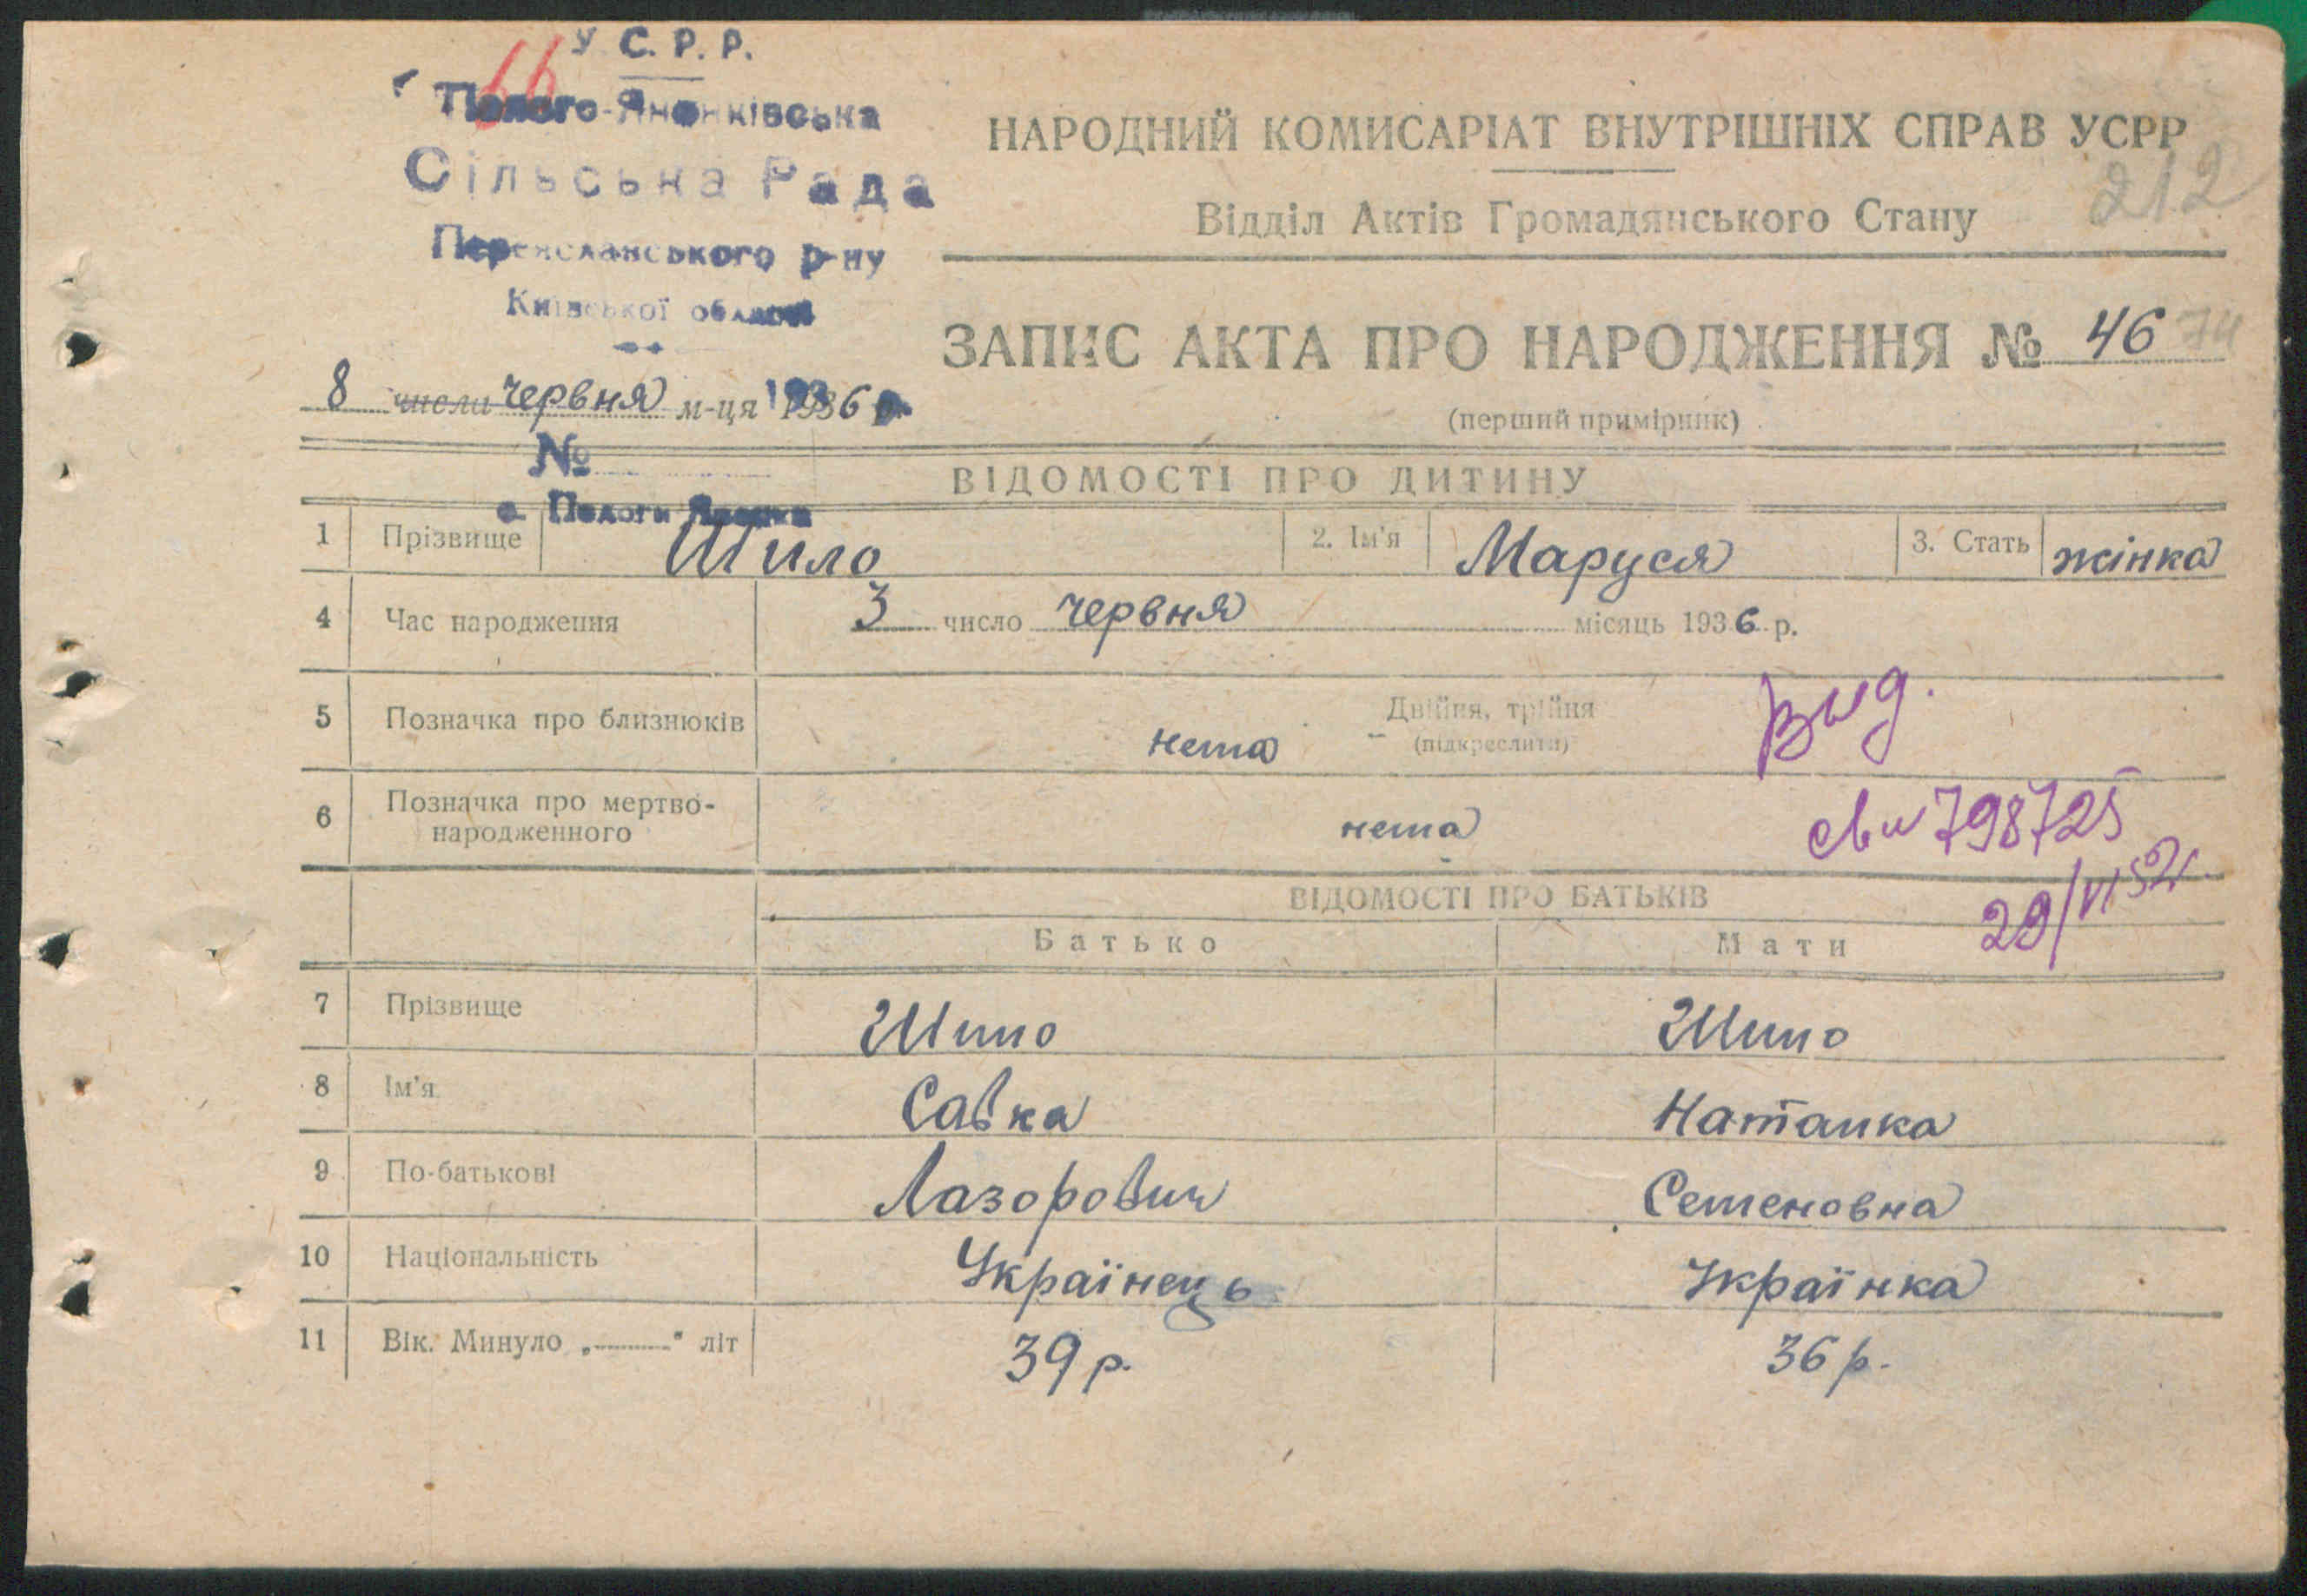 У С. Р. Р.
66
Полого-Яненківська
Сільська Рада
Переяславського р-ну
Київської області
НАРОДНИЙ КОМИСАРІАТ ВНУТРІШНІХ СПРАВ УСРР
212
Відділ Актів Громадянського Стану
ЗАПИС АКТА ПРО НАРОДЖЕННЯ № 46 74
8 числа червня м-ця 1936 р.
(перший примірник)
№
ВІДОМОСТІ ПРО ДИТИНУ
с. Пологи Яненки
1 Прізвище Шило 2. Ім'я Маруся 3. Стать жінка
4 Час народження 3 число червня місяць 1936 р.
5 Позначка про близнюків нема Двійня, трійня
(підкреслити)
Выд.
6 Позначка про мертво-
народженного нема
св и 798725
29/VI 52г.
ВІДОМОСТІ ПРО БАТЬКІВ
Батько Мати
7 Прізвище Шило Шило
8 Ім'я Савка Наталка
9 По-батькові Лазорович Семеновна
10 Національність Українець Українка
11 Вік. Минуло „ “ літ 39 р. 36 р.